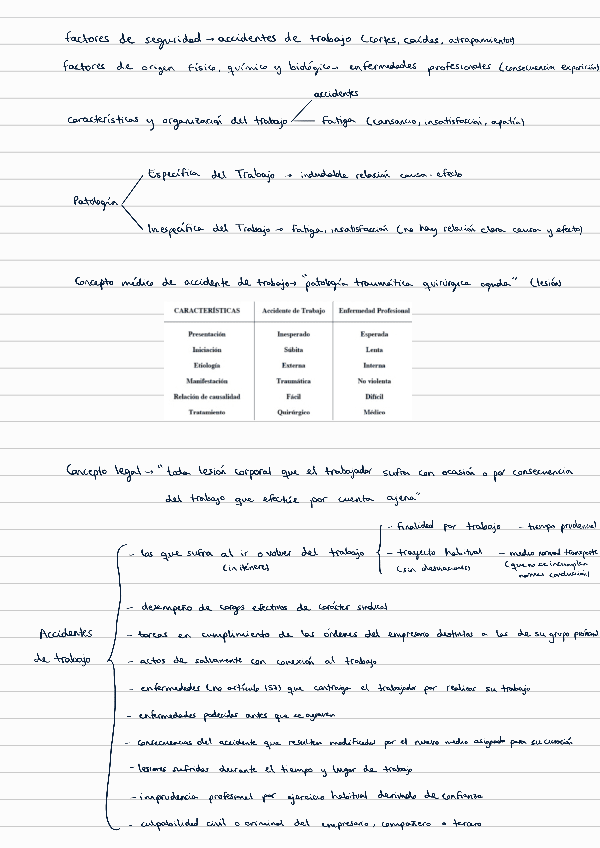 factores de seguridad → accidentes de trabajo (cortes, caídas, atrapamientos)
factores de origen físico, químico y biológico → enfermedades profesionales (consecuencia exposición)
accidentes
características y organización del trabajo — fatiga (cansancio, insatisfacción, apatía)
Específica del Trabajo → indudable relación causa-efecto
Patología
Inespecífica del Trabajo → fatiga, insatisfacción (no hay relación clara causa y efecto)
Concepto médico de accidente de trabajo → "patología traumática quirúrgica aguda" (lesión)
CARACTERÍSTICAS Accidente de Trabajo Enfermedad Profesional
Presentación Inesperado Esperada
Iniciación Súbita Lenta
Etiología Externa Interna
Manifestación Traumática No violenta
Relación de causalidad Fácil Difícil
Tratamiento Quirúrgico Médico
Concepto legal → "toda lesión corporal que el trabajador sufra con ocasión o por consecuencia
del trabajo que efectúe por cuenta ajena"
- finalidad por trabajo - tiempo prudencial
- los que sufra al ir o volver del trabajo - trayecto habitual - medio normal transporte
(in itinere) (sin desviaciones) (que no se incumplan
normas conducción)
- desempeño de cargos efectivos de carácter sindical
Accidentes - tareas en cumplimiento de las órdenes del empresario distintas a las de su grupo profesional
de trabajo - actos de salvamento con conexión al trabajo
- enfermedades (no artículo 157) que contraiga el trabajador por realizar su trabajo
- enfermedades padecidas antes que se agraven
- consecuencias del accidente que resulten modificadas por el nuevo medio asignado para su curación
- lesiones sufridas durante el tiempo y lugar de trabajo
- imprudencia profesional por ejercicio habitual derivado de confianza
- culpabilidad civil o criminal del empresario, compañero o tercero